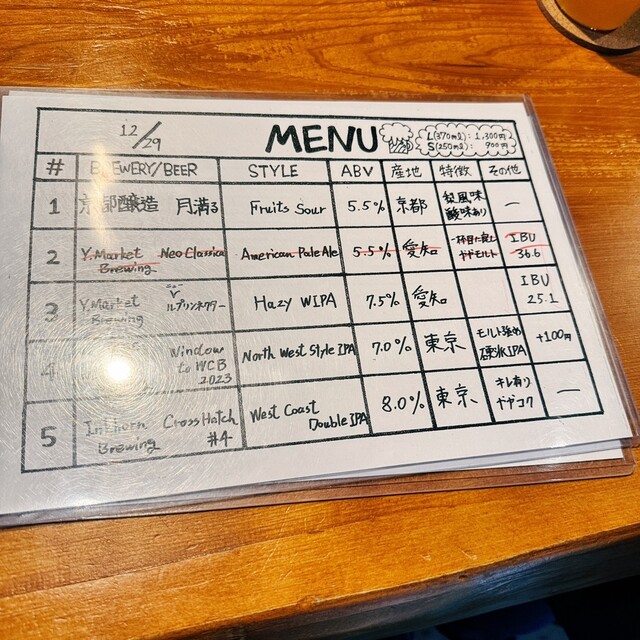 12/29 MENU L(370ml): 1,300円
S(250ml): 900円
# BREWERY/BEER STYLE ABV 産地 特徴 その他
1 京都醸造 月満る Fruits Sour 5.5% 京都 梨風味 酸味あり ―
2 Y.Market Brewing Neo Classica American Pale Ale 5.5% 愛知 IBU 36.6
3 Y.Market Brewing ルプリンネクター Hazy WIPA 7.5% 愛知 IBU 25.1
4 Window to WCB 2023 North West Style IPA 7.0% 東京 モルト強め +100円
5 Inkhorn Brewing CrossHatch #4 West Coast Double IPA 8.0% 東京 キレ有り ややコク ―